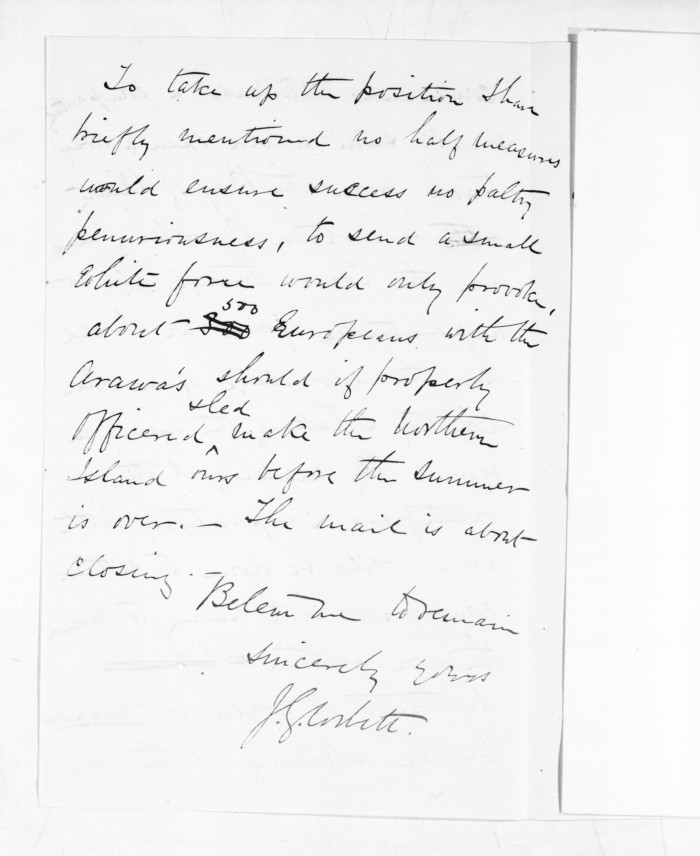 To take up the position I have
briefly mentioned no half measures
would ensure success no paltry
penuriousness, to send a small
white force would only provoke,
500
about 300 Europeans with the
Arawa's should if properly
officered, make the Northern
Island ours before the summer
is over. — The mail is about
closing. —
Believe me to remain
sincerely yours
J. G. Corbett.